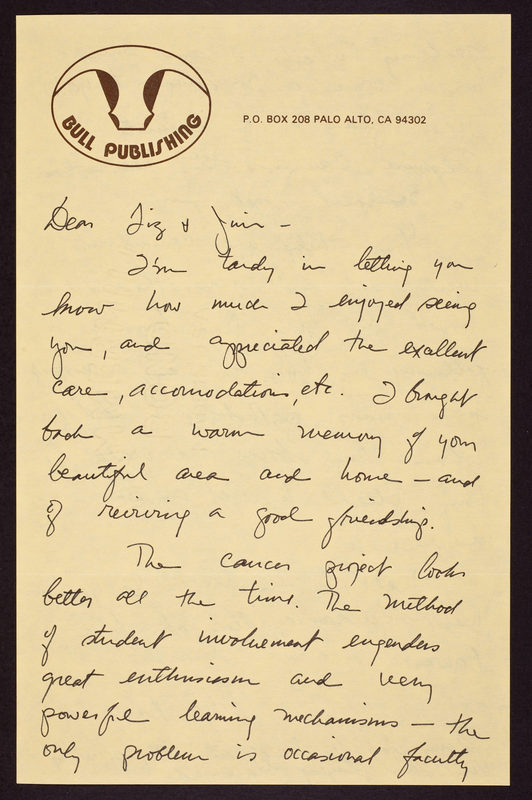 BULL PUBLISHING
P.O. BOX 208 PALO ALTO, CA 94302
Dear Liz & Jim –
I'm tardy in letting you
know how much I enjoyed seeing
you, and appreciated the excellent
care, accomodations, etc. I brought
back a warm memory of your
beautiful area and home – and
of reviving a good friendship.
The cancer project looks
better all the time. The method
of student involvement engenders
great enthusiasm and very
powerful learning mechanisms – the
only problem is occasional faculty